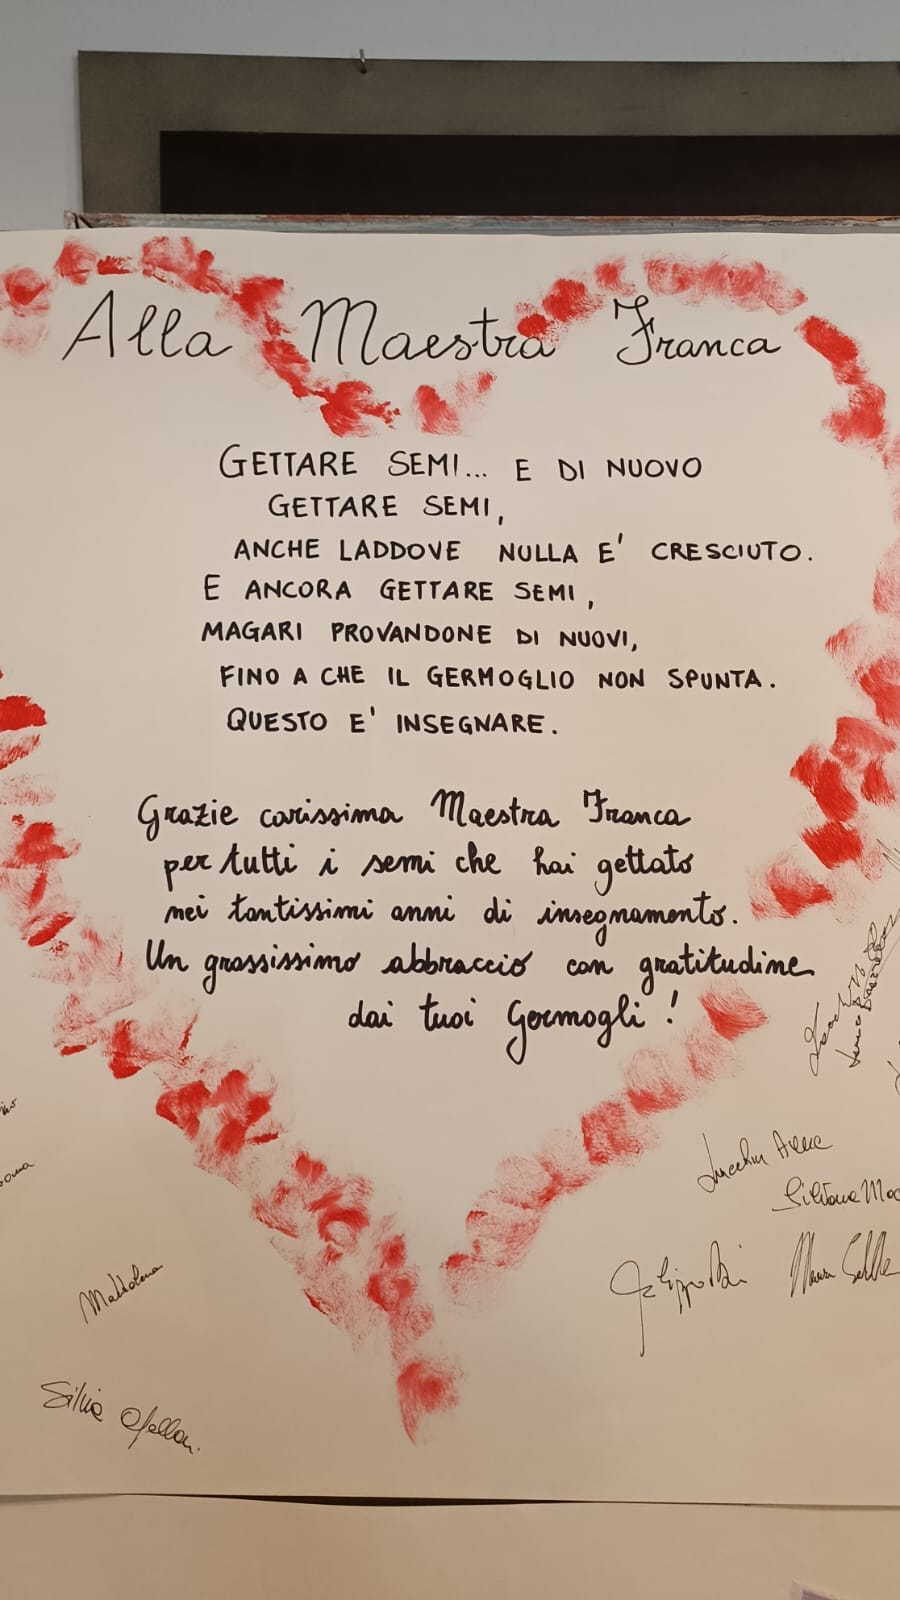 Alla Maestra Franca
GETTARE SEMI... E DI NUOVO
GETTARE SEMI,
ANCHE LADDOVE NULLA E' CRESCIUTO.
E ANCORA GETTARE SEMI,
MAGARI PROVANDONE DI NUOVI,
FINO A CHE IL GERMOGLIO NON SPUNTA.
QUESTO E' INSEGNARE.
Grazie carissima Maestra Franca
per tutti i semi che hai gettato
nei tantissimi anni di insegnamento.
Un grossissimo abbraccio con gratitudine
dai tuoi Germogli!
Silvia